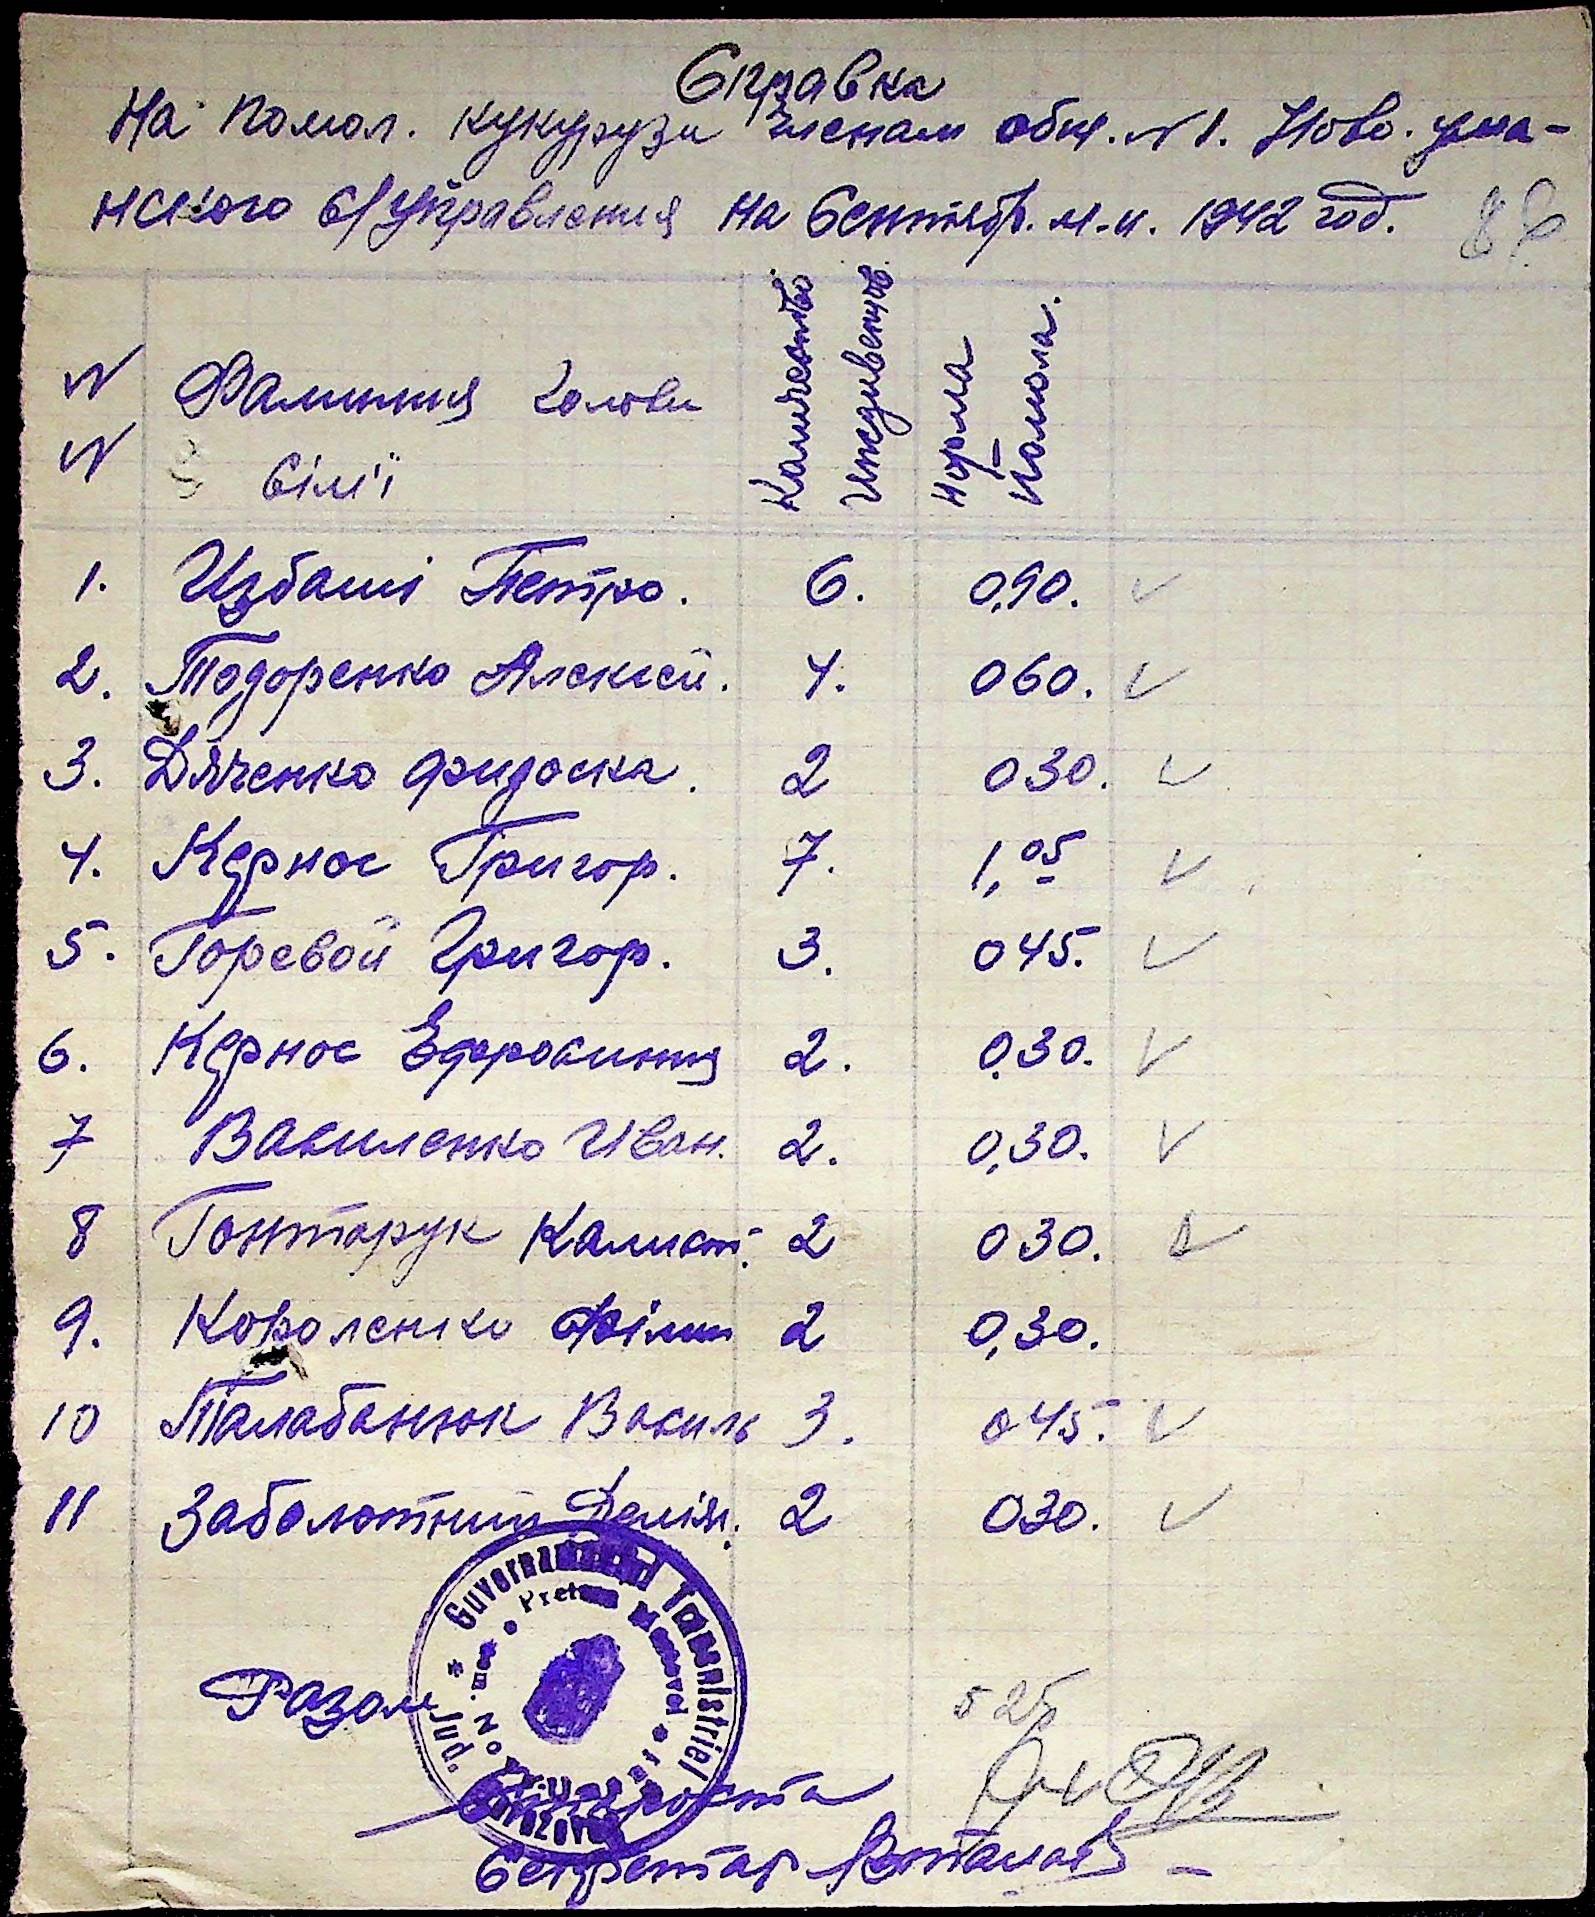 Справка
На помол. кукурузи членам общ. № 1. Ново. ума-
нского с/управления на Сентябр. м-ц. 1942 год.
№ Фамилия голови
№ сімї
Количество
Норма
Помола.
1. Избаш Петро. 6. 0,90.
2. Тодоренко Алексей. 4. 060.
3. Дяченко Фидоска. 2 030.
4. Кернос Григор. 7. 1,05
5. Горевой Григор. 3. 045.
6. Кернос Ефросиния 2. 0,30.
7 Василенко Иван. 2. 0,30.
8 Гонтарук Калист. 2 030.
9. Короленко Філип 2 0,30.
10 Талабанюк Василь 3. 045.
11 Заболотний Демян. 2 030.
Guvernamantul Transnistriei
Jud.
Разом 5 25
Староста
Секретар